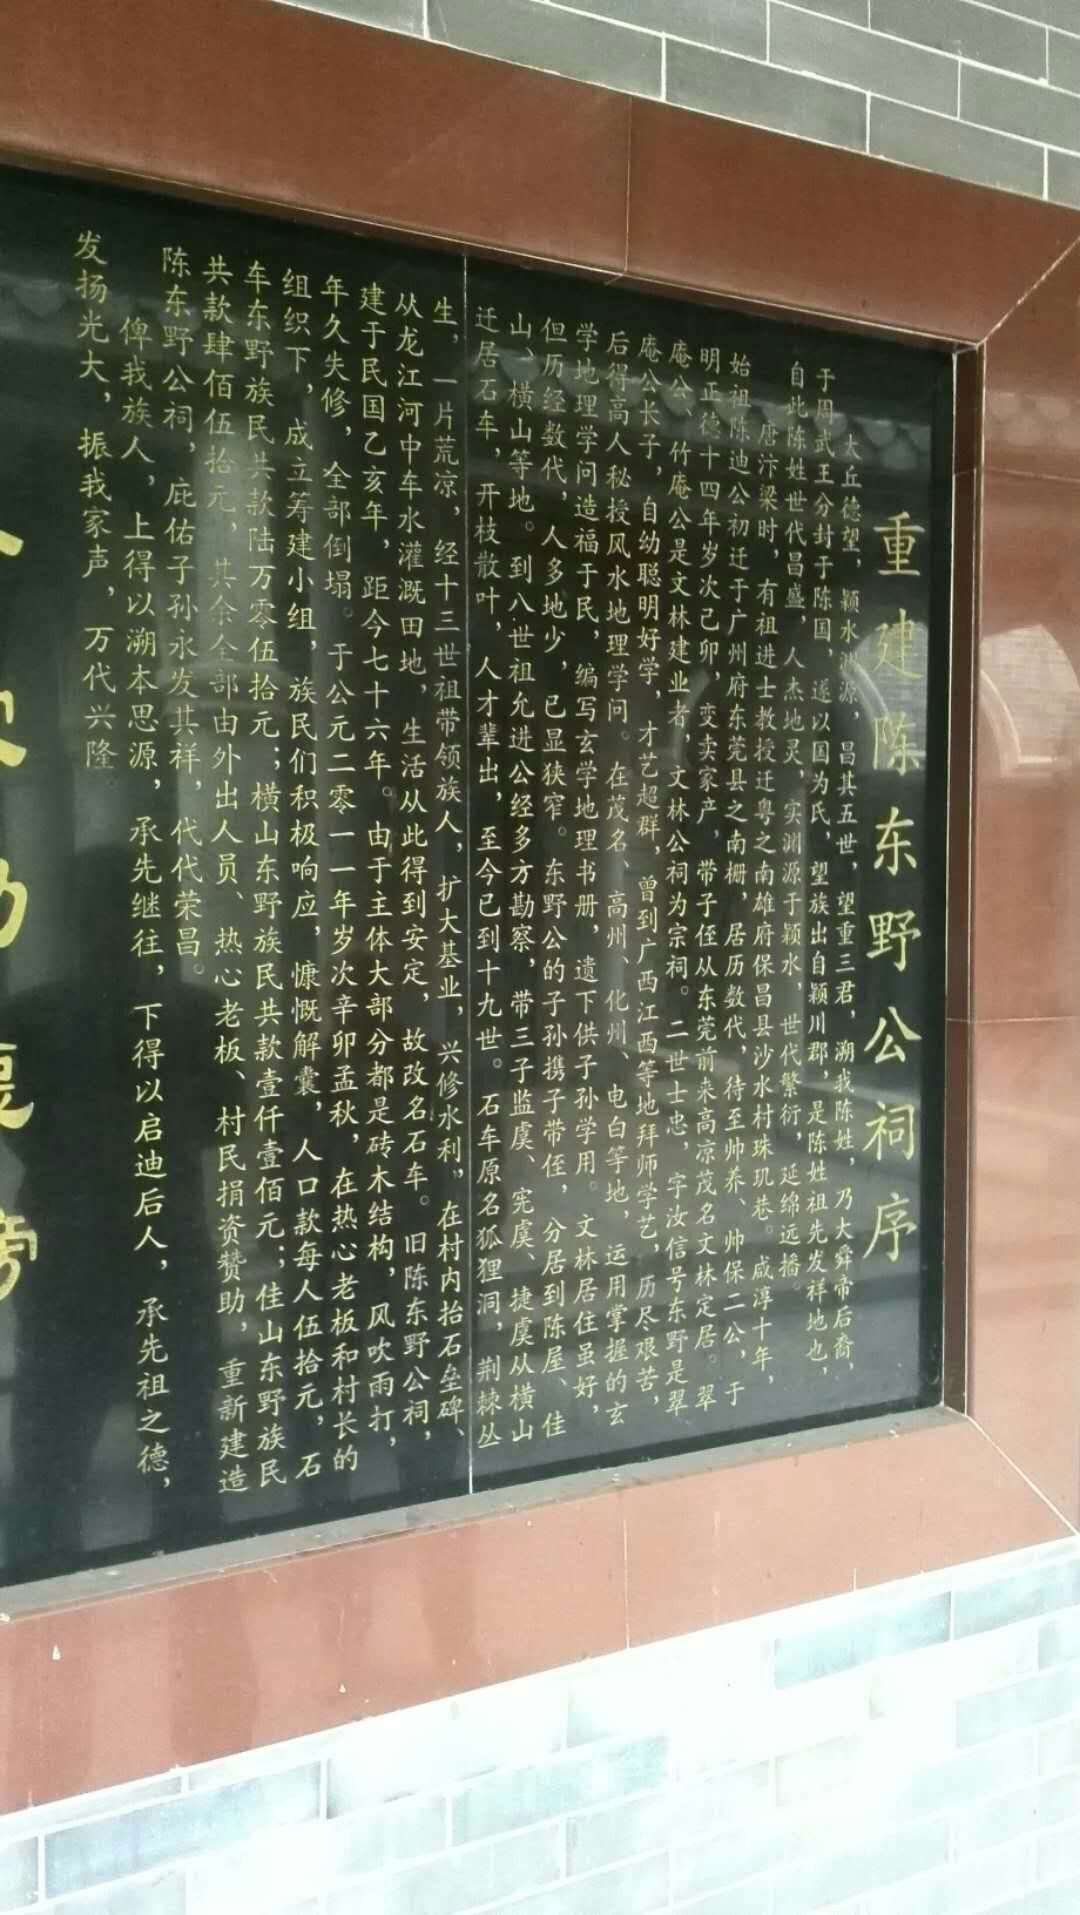 重建陈东野公祠序
太丘德望，颖水渊源，昌其五世，望重三君，溯我陈姓，乃大舜帝后裔，
于周武王分封于陈国，遂以国为氏，望族出自颖川郡，是陈姓祖先发祥地也，
自此陈姓世代昌盛，人杰地灵，实渊源于颖水，世代繁衍，延绵远播。
唐汴梁时，有祖进士教授迁粤之南雄府保昌县沙水村珠玑巷。咸淳十年，
始祖陈迪公初迁于广州府东莞县之南栅，居历数代，待至帅养、帅保二公，于
明正德十四年岁次己卯，变卖家产，带子侄从东莞前来高凉茂名文林定居。翠
庵公、竹庵公是文林建业者，文林公祠为宗祠。二世士忠，字汝信号东野是翠
庵公长子，自幼聪明好学，才艺超群，曾到广西江西等地拜师学艺，历尽艰苦，
后得高人秘授风水地理学问。在茂名、高州、化州、电白等地，运用掌握的玄
学地理学问造福于民，编写玄学地理书册，遗下供子孙学用。文林居住虽好，
但历经数代，人多地少，已显狭窄。东野公的子孙携子带侄，分居到陈屋、佳
山、横山等地。到八世祖允进公经多方勘察，带三子监虞、宪虞、捷虞从横山
迁居石车，开枝散叶，人才辈出，至今已到十九世。石车原名狐狸洞，荆棘丛
生，一片荒凉，经十三世祖带领族人，扩大基业，兴修水利。在村内抬石垒碑、
从龙江河中车水灌溉田地，生活从此得到安定，故改名石车。旧陈东野公祠，
建于民国乙亥年，距今七十六年。由于主体大部分都是砖木结构，风吹雨打，
年久失修，全部倒塌。于公元二零一一年岁次辛卯孟秋，在热心老板和村长的
组织下，成立筹建小组，族民们积极响应，慷慨解囊，人口款每人伍拾元，石
车东野族民共款陆万零伍拾元；横山东野族民共款壹仟壹佰元；佳山东野族民
共款肆佰伍拾元，其余全部由外出人员、热心老板、村民捐资赞助，重新建造
陈东野公祠，庇佑子孙永发其祥，代代荣昌。
俾我族人，上得以溯本思源，承先继往，下得以启迪后人，承先祖之德，
发扬光大，振我家声，万代兴隆。